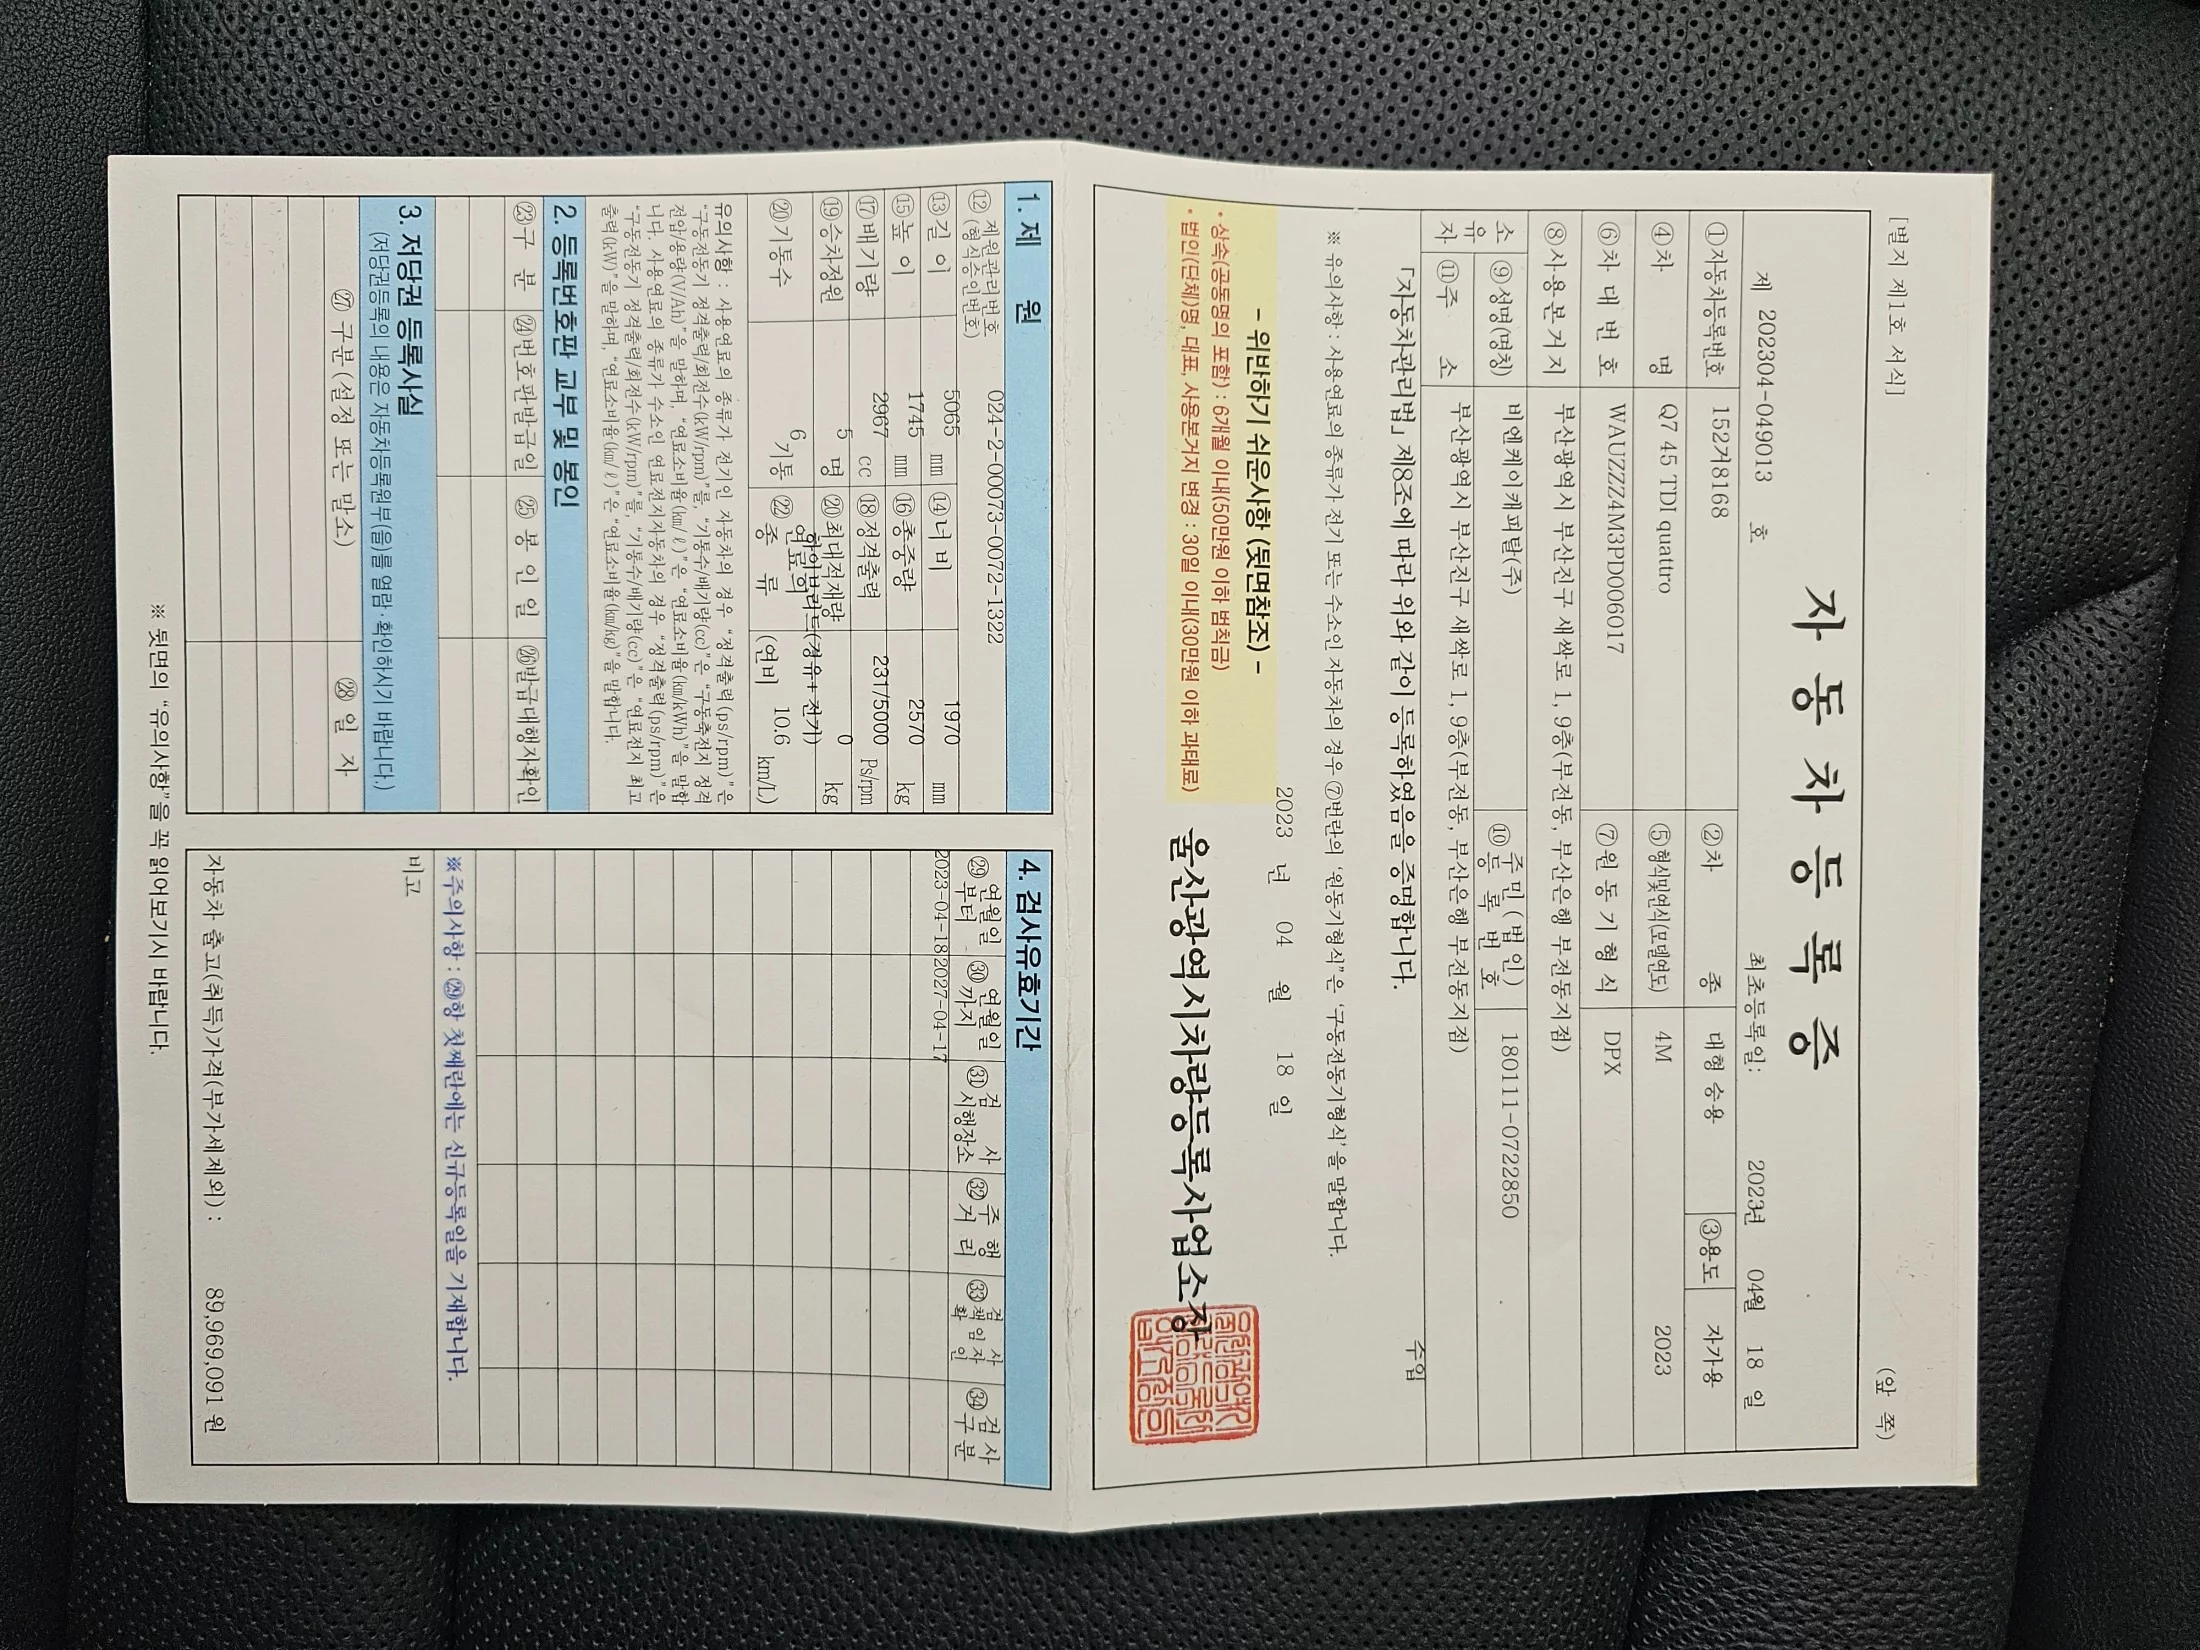 [별지 제1호 서식]
(앞 쪽)
자 동 차 등 록 증
제 202304-049013 호
최초등록일: 2023년 04월 18 일
①자동차등록번호 152거8168 ②차 종 대형 승용 ③용도 자가용
④차 명 Q7 45 TDI quattro ⑤형식및연식(모델연도) 4M 2023
⑥차 대 번 호 WAUZZZ4M3PD006017 ⑦원 동 기 형 식 DPX
⑧사 용 본 거 지 부산광역시 부산진구 새싹로 1, 9층(부전동, 부산은행 부전동지점)
소유자 ⑨성명(명칭) 비엔케이캐피탈(주) ⑩주민(법인)등록번호 180111-0722850
⑪주 소 부산광역시 부산진구 새싹로 1, 9층(부전동, 부산은행 부전동지점)
수입
「자동차관리법」 제8조에 따라 위와 같이 등록하였음을 증명합니다.
※ 유의사항 : 사용연료의 종류가 전기 또는 수소인 자동차의 경우 ⑦번란의 '원동기형식"은 '구동전동기형식'을 말합니다.
2023 년 04 월 18 일
- 위반하기 쉬운사항 (뒷면참조) -
• 상속(공동명의 포함) : 6개월 이내(50만원 이하 범칙금)
• 법인(단체)명, 대표, 사용본거지 변경 : 30일 이내(30만원 이하 과태료)
울산광역시차량등록사업소장
1. 제 원
⑫ 제원관리번호 (형식승인번호) 024-2-00073-0072-1322
⑬길 이 5065 mm ⑭너 비 1970 mm
⑮높 이 1745 mm ⑯총중량 2570 kg
⑰배기량 2967 cc ⑱정격출력 231/5000 Ps/rpm
⑲승차정원 5 명 ⑳최대적재량 0 kg
⑳기통수 6 기통 ㉒연료의 종 류 하이브리드(경유+전기) (연비 10.6 km/L)
유의사항 : 사용연료의 종류가 전기인 자동차의 경우 "정격출력(ps/rpm)"은
"구동전동기 정격출력/회전수(kW/rpm)"를, "기통수/배기량(cc)"은 "구동축전지 정격
전압/용량(V/Ah)"을 말하며, "연료소비율(km/ℓ)"은 "연료소비율(km/kWh)"을 말합
니다. 사용연료의 종류가 수소인 연료전지자동차의 경우 "정격출력(ps/rpm)"은
"구동전동기 정격출력/회전수(kW/rpm)"를, "기통수/배기량(cc)"은 "연료전지 최고
출력(kW)"을 말하며, "연료소비율(km/ℓ)"은 "연료소비율(km/kg)"을 말합니다.
2. 등록번호판 교부 및 봉인
㉓구 분 ㉔번호판발급일 ㉕봉 인 일 ㉖발급대행자확인
3. 저당권 등록사실
(저당권등록의 내용은 자동차등록원부(을)를 열람·확인하시기 바랍니다.)
㉗ 구분(설정 또는 말소) ㉘ 일 자
4. 검사유효기간
㉙ 연월일 부터 ㉚ 연월일 까지 ㉛ 검 사 시행장소 ㉜ 주 행 거 리 ㉝ 검 사 책임자 확 인 ㉞ 검사 구분
2023-04-18 2027-04-17
※주의사항 : ㉙항 첫째란에는 신규등록일을 기재합니다.
비고
자동차 출고(취득)가격(부가세제외) : 89,969,091 원
※ 뒷면의 "유의사항"을 꼭 읽어보기시 바랍니다.